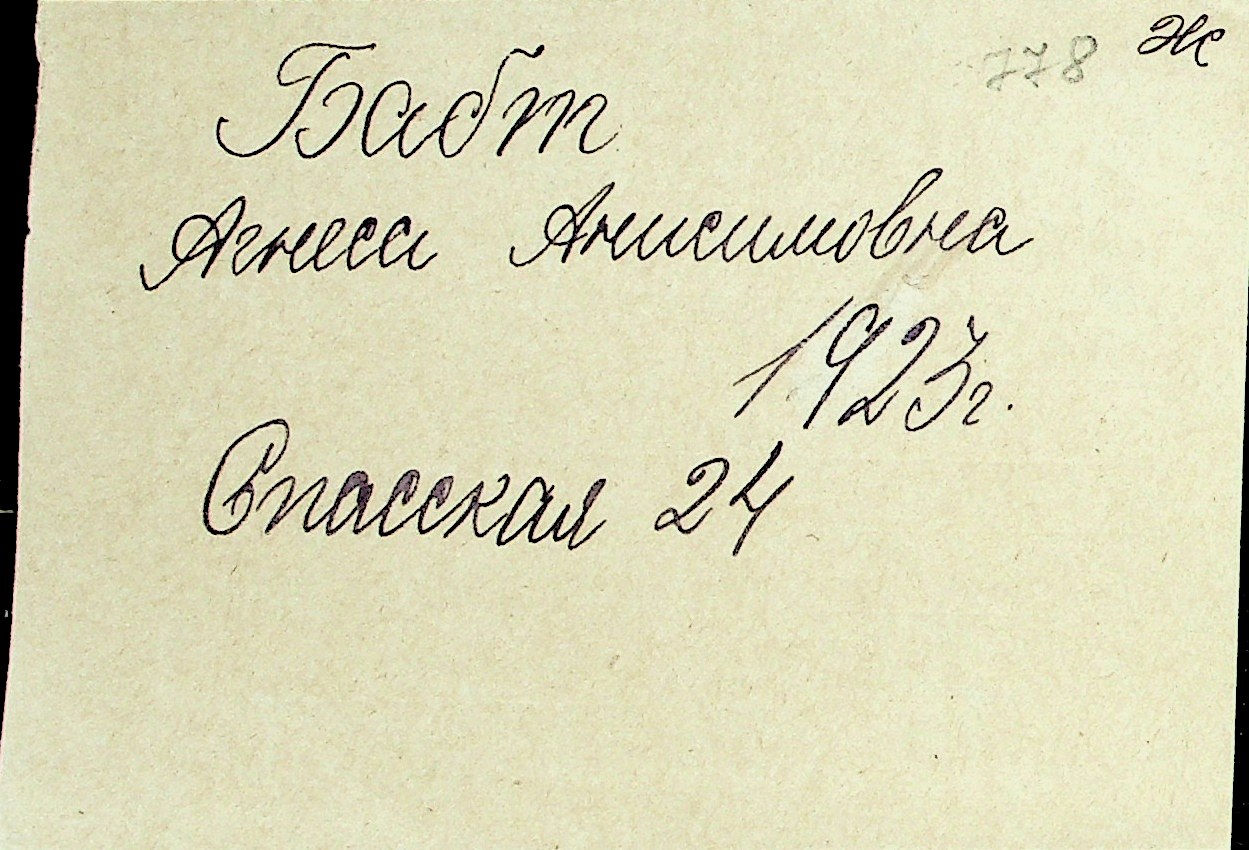 778 Ж
Бабт
Агнесса Анисимовна
1923г.
Спасская 24